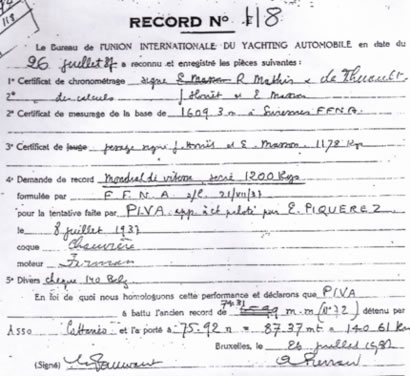 118
RECORD No. 118
Le Bureau de l'UNION INTERNATIONALE DU YACHTING AUTOMOBILE en date du
26 juillet 37 a reconnu et enregistré les pièces suivantes :
1° Certificat de chronométrage signé E. Masson R. Mathis
2° des calculs J. et E. Masson
2° Certificat de mesurage de la base de 1609.3 m à Suresnes F.F.N.A.
3° Certificat de jauge pesage signé et E. Masson. 1178 Kgs
4° Demande de record Mondial de vitesse 1200 Kgs
formulée par F.F.N.A
pour la tentative faite par PIVA app. à et piloté par E. PIQUEREZ
le 8 juillet 1937
coque Chauvière
moteur
5° Divers cheque 140 Belg
En foi de quoi nous homologuons cette performance et déclarons que PIVA
74.31
a battu l'ancien record de m.m (N°32) détenu par
Asso Cattaneo et l'a porté à 75.92 n = 87.37 mt = 140.61 Km
Bruxelles, le juillet 1937
(Signé)